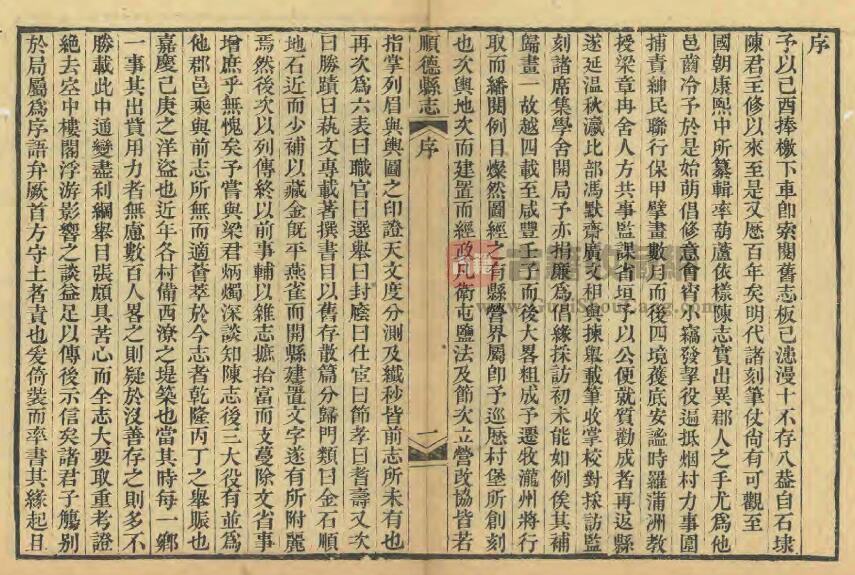 序
予以己酉捧檄下車卽索閱舊志板已漶漫十不存八葢自石埭
陳君王修以來至是又歷百年矣明代諸刻筆仗尙有可觀至
國朝康熙中所纂輯率葫蘆依樣陳志實出異郡人之手尤爲他
邑齒冷予於是始萌倡修意會甯小竊發挐役遍抵烟村力事團
捕責紳民聯行保甲擘畫數月而後四境葰底安謐時羅蒲洲教
授梁章冉舍人方共事監課省垣予以公便就質勸成者再返縣
遂延温秋瀛比部馮默齋廣文相與揀舉載筆收掌校對採訪監
刻諸席集學舍開局予亦捐廉爲倡緣採訪初未能如例俟其補
歸畫一故越四載至咸豐壬子而後大畧粗成予遷牧瀧州將行
取而繙閱例目燦然圖經之有縣營界屬卽予巡歷村堡所創刻
也次輿地次而建置而經政凡衛屯鹽法及節次立營改協皆若
順德縣志
序
一
指掌列眉與輿圖之印證天文度分測及纖秒皆前志所未有也
再次爲六表曰職官曰選舉曰封廕曰仕宦曰節孝曰耆壽又次
曰勝蹟曰蓺文專載著撰書目以舊存散篇分歸門類曰金石順
地石近而少補以藏金旣平燕雀而開縣建置文字遂有所附麗
焉然後次以列傳終以前事輔以雜志摭拾富而支蔓除文省事
增庶乎無愧矣予嘗與梁君炳燭深談知陳志後三大役有並爲
他郡邑乘與前志所無而適薈萃於今志者乾隆丙丁之舉賑也
嘉慶己庚之洋盜也近年各村備西潦之堤築也當其時每一鄕
一事其出貲用力者無慮數百人畧之則疑於沒善存之則多不
勝載此中通變盡利綱舉目張頗具苦心而全志大要取重考證
絶去空中樓閣浮游影響之談益足以傳後示信矣諸君子觴别
於局屬爲序語弁厥首方守土者責也爰倚裝而率書其緣起且